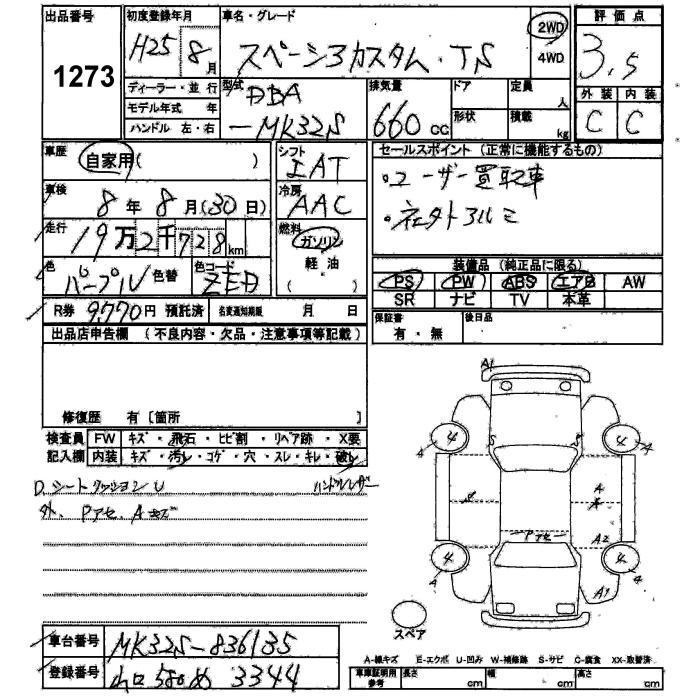 出品番号 初度登録年月 車名・グレード 評価点
1273 H25 8月 スペーシアカスタム・TS 2WD 4WD 3.5
外装 内装
C C
ディーラー・並行 型式 DBA 排気量 ドア 定員 人
モデル年式 年 -MK32S 660cc 形状 積載 kg
ハンドル 左・右
車歴 自家用( ) シフト IAT セールスポイント(正常に機能するもの)
・ユーザー買取車
車検 8年 8月(30日) 冷房 AAC
・社外アルミ
走行 19万2千728km 燃料 ガソリン 軽油 ( )
色 パープル 色替 色コード ZED
装備品(純正品に限る)
PS PW ABS エアB AW
SR ナビ TV 本革
R券 9,770円 預託済 名変通知期限 月 日
保証書 有・無 後日品
出品店申告欄 (不良内容・欠品・注意事項等記載)
修復歴 有 [箇所 ]
検査員 FW キズ・飛石・ヒビ割・リペア跡・X要
記入欄 内装 キズ・汚レ・コゲ・穴・スレ・キレ・破レ
D.シートクッションU ハンドルレザー
外、Pアセ、Aキズ
A1
4 S S 4
A
A
Pアセ A2
4 4
A1
スペア
車台番号 MK32S-836135
登録番号 山口 580 め 3344
A-線キズ E-エクボ U-凹み W-補修跡 S-サビ C-腐食 XX-取替済
車庫証明用参考 長さ cm 幅 cm 高さ cm